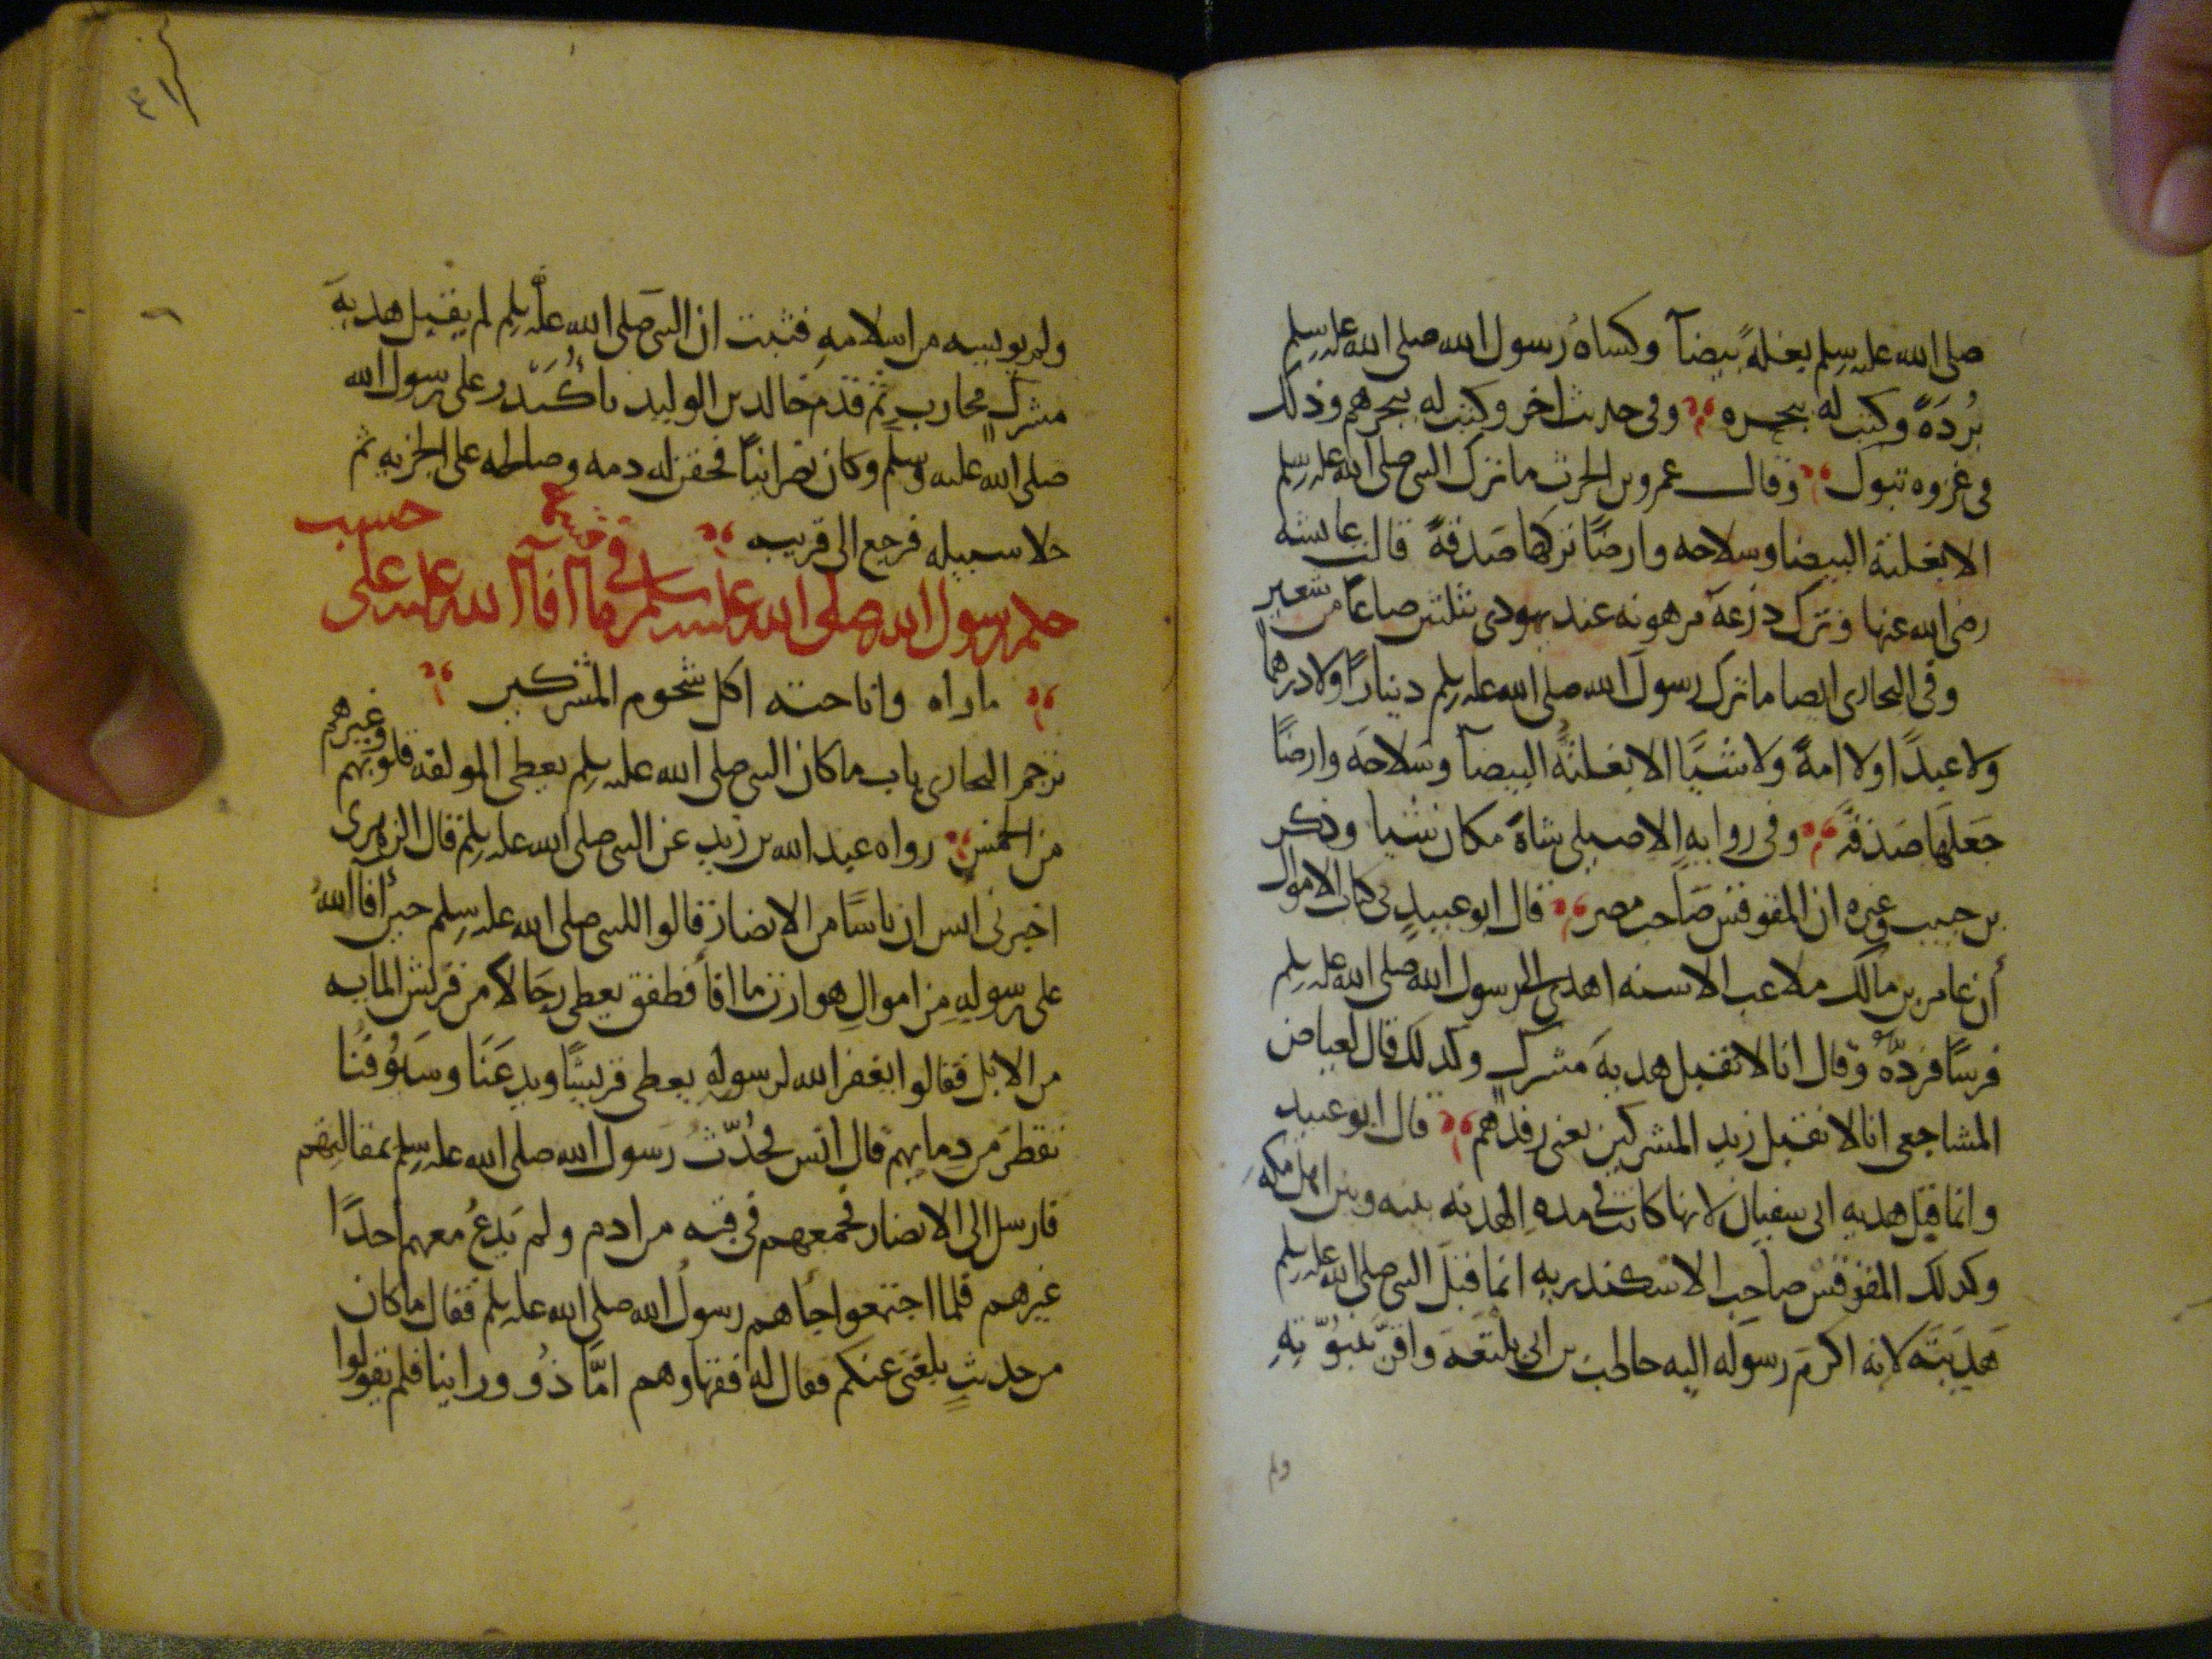 صلى الله عليه وسلم بغلة بيضآ وكساه رسول الله صلى الله عليه وسلم
بُردَةً وكتب له ببحره وفى حديث اخر وكتب له ببحرهم وذلك
فى غزوه تبوك وقال عمرو بن الحرث ما ترك النبى صلى الله عليه وسلم
الا بغلته البيضا وسلاحه وارضًا تركها صَدقةً قالت عايشه
رضى الله عنها وترك درعَه مرهونه عند يهودى بثلثين صاعًا من شعير
وفى البخارى ايضا ما ترك رسول الله صلى الله عليه وسلم دينارًا ولا درهما
ولا عبدًا ولا امةً ولا شيًا الا بغلتُه البيضآ وسَلاحَه وارضًا
جَعَلها صَدَقَةً وفى روايهِ الاصيلى شاةً مكان شيا وذكر
بن حبيب وغيره ان المقوقس صَاحب مصر قال ابو عبيدٍ فى كتاب الاموال
أن عامر بن مالك ملاعب الاسنه اهدى الى رسول الله صلى الله عليه وسلم
فرسًا فردّه وقال انا لا نقبل هديةَ مشركٍ وكذلك قال لعياض
المشاجعى انا لا نقبل زبد المشركين يعنى رفدهم قال ابو عبيد
وانما قبل هديه ابى سفيان لانها كانت فى مده الهدنه بينه وبين اهل مكه
وكذلك المقوقس صاحب الاسكندريه انما قبلَ النبى صلى الله عليه وسلم
هَدِيَتَه لانه اكرمَ رسولَه اليه حاطبَ بن ابى بلتعَه واقرَّ بنبُوّتِهِ
ولم
ولم يويسه من اسلامهِ فثبت ان النبى صلى الله عليه وسلم لم يقبل هديةَ
مشركٍ محارب ثم قدم خالد بن الوليد باُكَيْدر على رسول الله
صلى الله عليه وسلم وكان نصرانيًا فحقن له دمه وصالحه على الجزيه ثم
خلا سبيله فرجع الى قريته
حكم رسول الله صلى الله عليه وسلم فى قسمه ما افآ الله عليه على حسب
ما راه واباحته اكل شحوم المشركين
ترجم البخارى باب ما كان النبى صلى الله عليه وسلم يعطى المولفه قلوبهم وغيرهم
من الخمس رواه عبد الله بن زيد عن النبى صلى الله عليه وسلم قال الزهرى
اخبرنى انس ان ناسًا من الانصار قالوا للنبى صلى الله عليه وسلم حين أفآ اللهُ
على رسولهِ مِن اموالِ هوازن ما افآ فطفق يعطى رجَالا من قريش المايه
من الابل فقالوا يغفر الله لرسولهِ يعطى قريشًا ويدعَنَا وسَيوُفُنَا
تقطر من دمايهم قال انس فحُدّث رسول الله صلى الله عليه وسلم بمقالتِهم
فارسل الى الانصار فجمعهم فى قبه من ادم ولم يَدعُ معهم احدًا
غيرهم فلما اجتمعوا جاهم رسولُ الله صلى الله عليه وسلم فقال ما كان
من حديثٍ بلغنى عنكم فقال له فقهاوهم امَّا ذوُو راينا فلم يقولوا